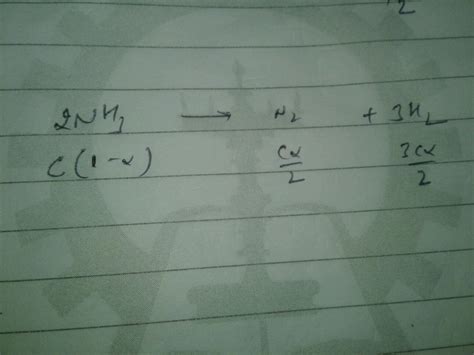 2NH₃ → N₂ + 3H₂
C(1-α) Cα/2 3Cα/2